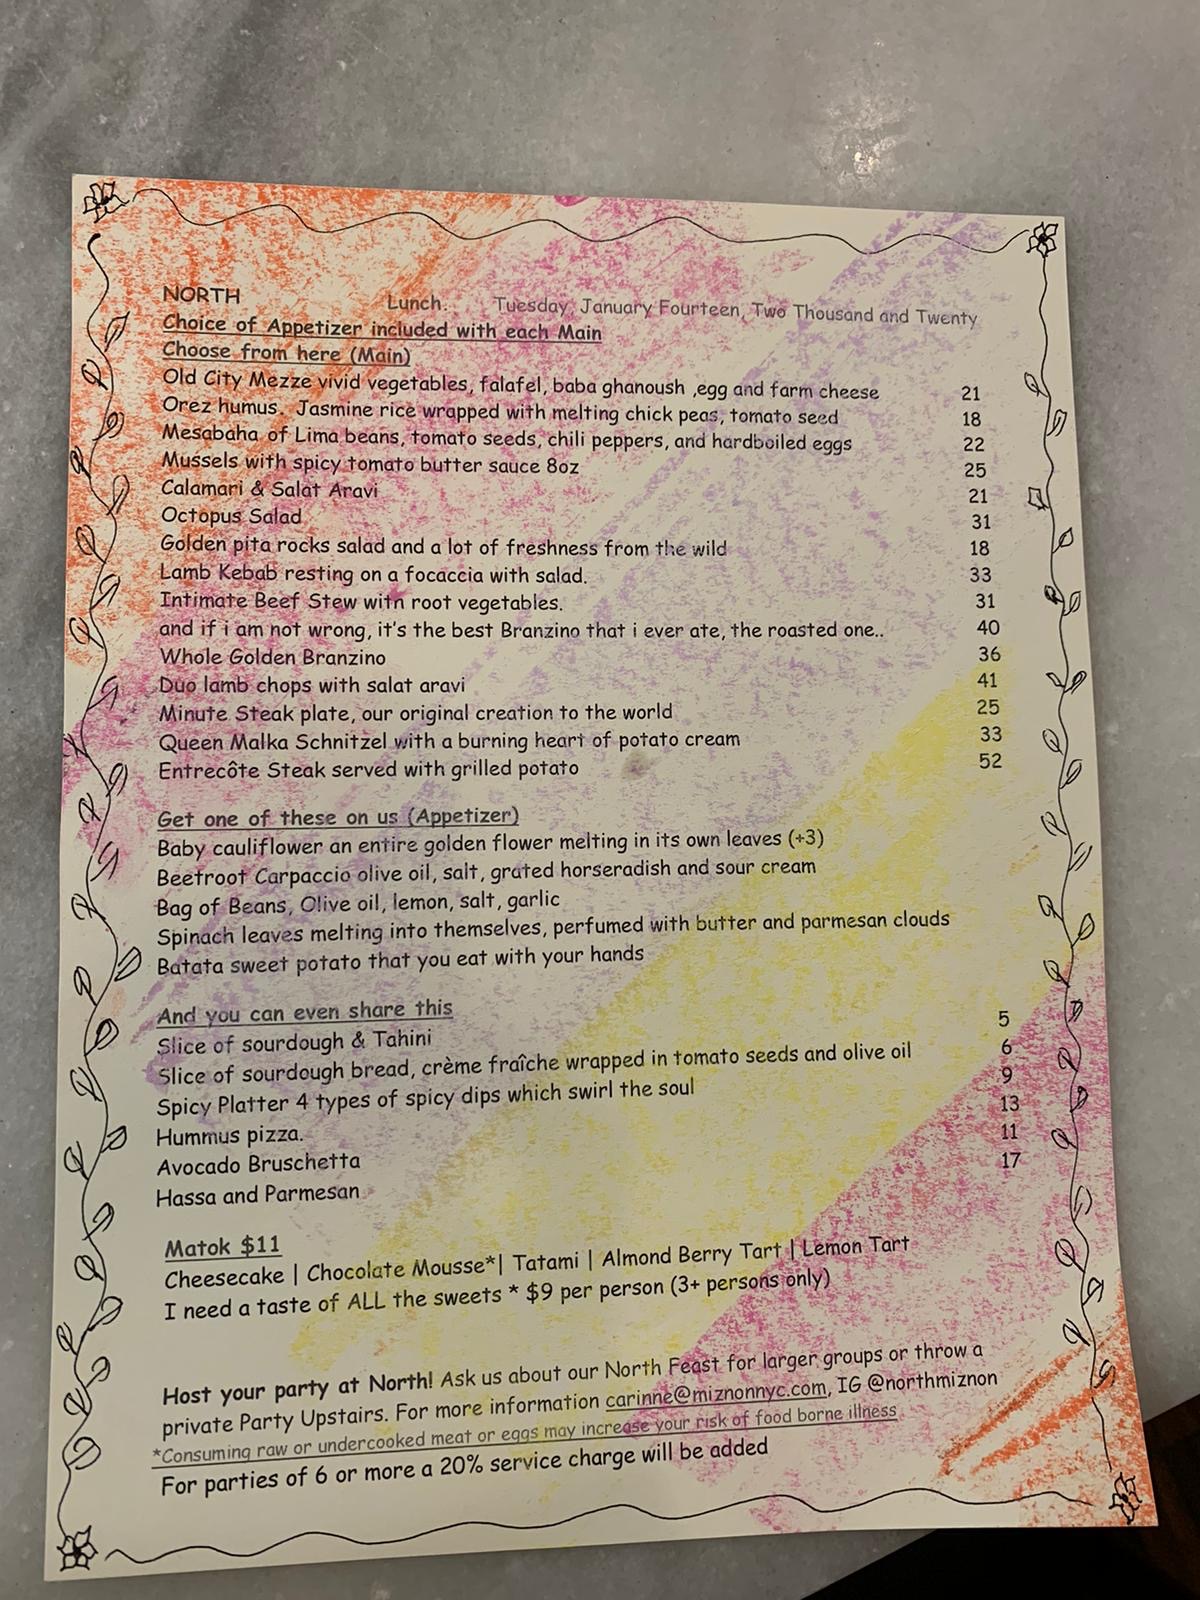 NORTH Lunch. Tuesday, January Fourteen, Two Thousand and Twenty
Choice of Appetizer included with each Main
Choose from here (Main)
Old City Mezze vivid vegetables, falafel, baba ghanoush ,egg and farm cheese 21
Orez humus. Jasmine rice wrapped with melting chick peas, tomato seed 18
Mesabaha of Lima beans, tomato seeds, chili peppers, and hardboiled eggs 22
Mussels with spicy tomato butter sauce 8oz 25
Calamari & Salat Aravi 21
Octopus Salad 31
Golden pita rocks salad and a lot of freshness from the wild 18
Lamb Kebab resting on a focaccia with salad. 33
Intimate Beef Stew with root vegetables. 31
and if i am not wrong, it's the best Branzino that i ever ate, the roasted one.. 40
Whole Golden Branzino 36
Duo lamb chops with salat aravi 41
Minute Steak plate, our original creation to the world 25
Queen Malka Schnitzel with a burning heart of potato cream 33
Entrecôte Steak served with grilled potato 52
Get one of these on us (Appetizer)
Baby cauliflower an entire golden flower melting in its own leaves (+3)
Beetroot Carpaccio olive oil, salt, grated horseradish and sour cream
Bag of Beans, Olive oil, lemon, salt, garlic
Spinach leaves melting into themselves, perfumed with butter and parmesan clouds
Batata sweet potato that you eat with your hands
And you can even share this
Slice of sourdough & Tahini 5
Slice of sourdough bread, crème fraîche wrapped in tomato seeds and olive oil 6
Spicy Platter 4 types of spicy dips which swirl the soul 9
Hummus pizza. 13
Avocado Bruschetta 11
Hassa and Parmesan 17
Matok $11
Cheesecake | Chocolate Mousse*| Tatami | Almond Berry Tart | Lemon Tart
I need a taste of ALL the sweets * $9 per person (3+ persons only)
Host your party at North! Ask us about our North Feast for larger groups or throw a
private Party Upstairs. For more information carinne@miznonnyc.com, IG @northmiznon
*Consuming raw or undercooked meat or eggs may increase your risk of food borne illness
For parties of 6 or more a 20% service charge will be added